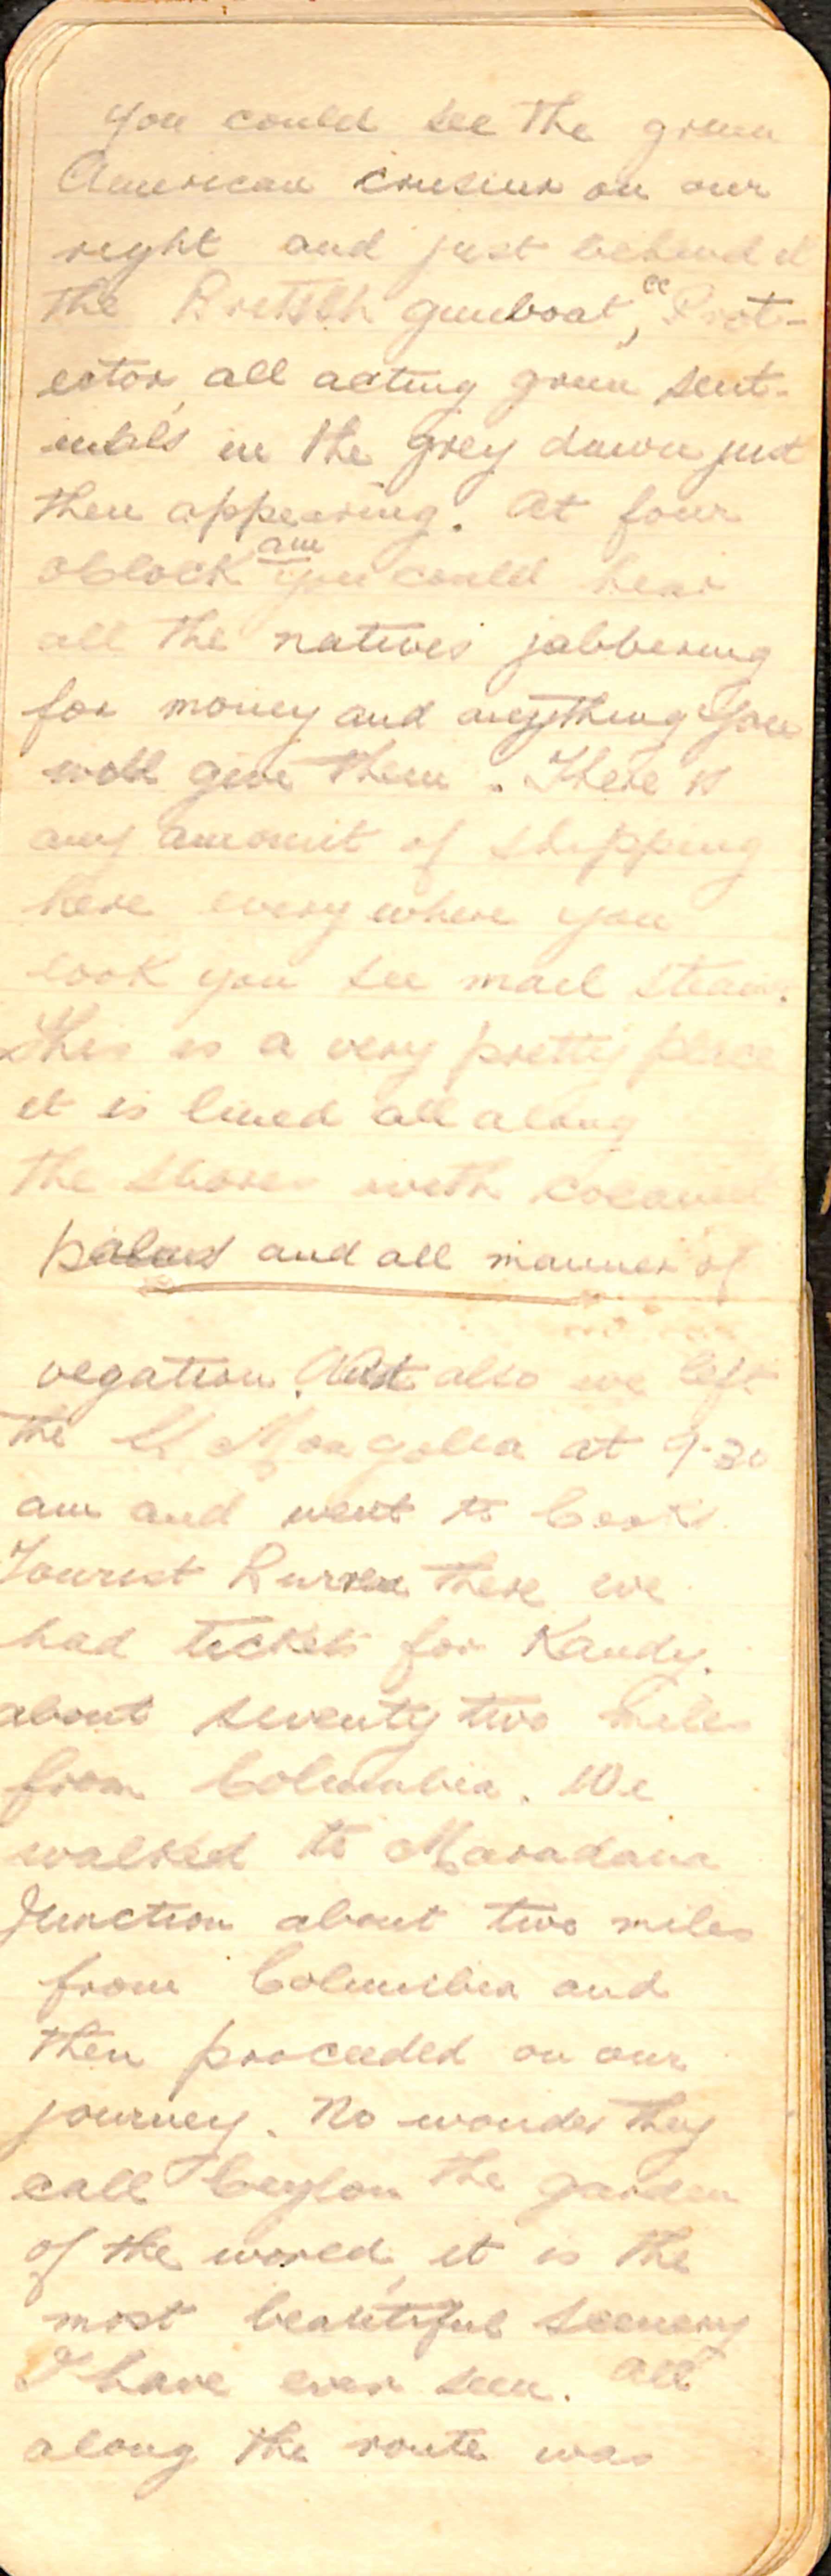 you could see the grim
American cruiser on our
right and just behind it
the British gunboat, "Prot-
ector, all acting grim sent-
inels in the grey dawn just
then appearing. At four
oclock am you could hear
all the natives jabbering
for money and anything you
will give them. There is
any amount of shipping
here every where you
look you see mail steam.
This is a very pretty place
it is lined all along
the shores with cocanut
palms and all manner of
vegation. also we left
the Mongolia at 9.30
am and went to Cooks
Tourist there we
had tickets for Kandy.
about seventy two miles
from Columbia. We
walked to Maradana
Junction about two miles
from Columbia and
then proceeded on our
journey. No wonder they
call Ceylon the garden
of the world, it is the
most beautiful scenery
I have ever seen. All
along the route was